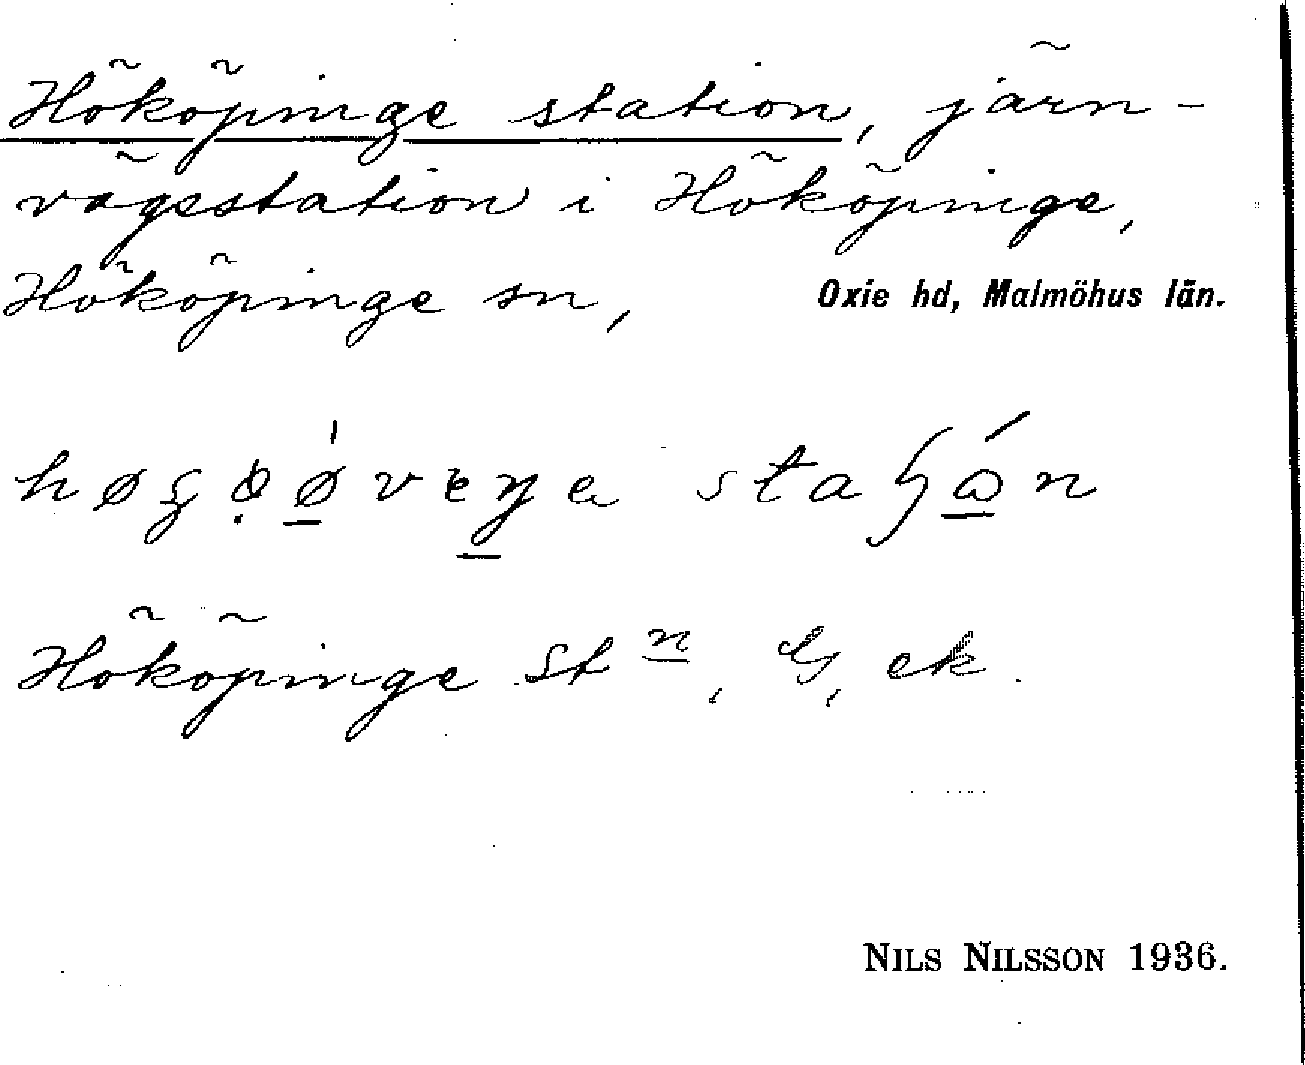 Hököpinge station, järn-
vägsstation i Hököpinge,
Hököpinge sn, Oxie hd, Malmöhus län.
Hököpinge st<sup>n</sup>, G, ek.
NILS NILSSON 1936.